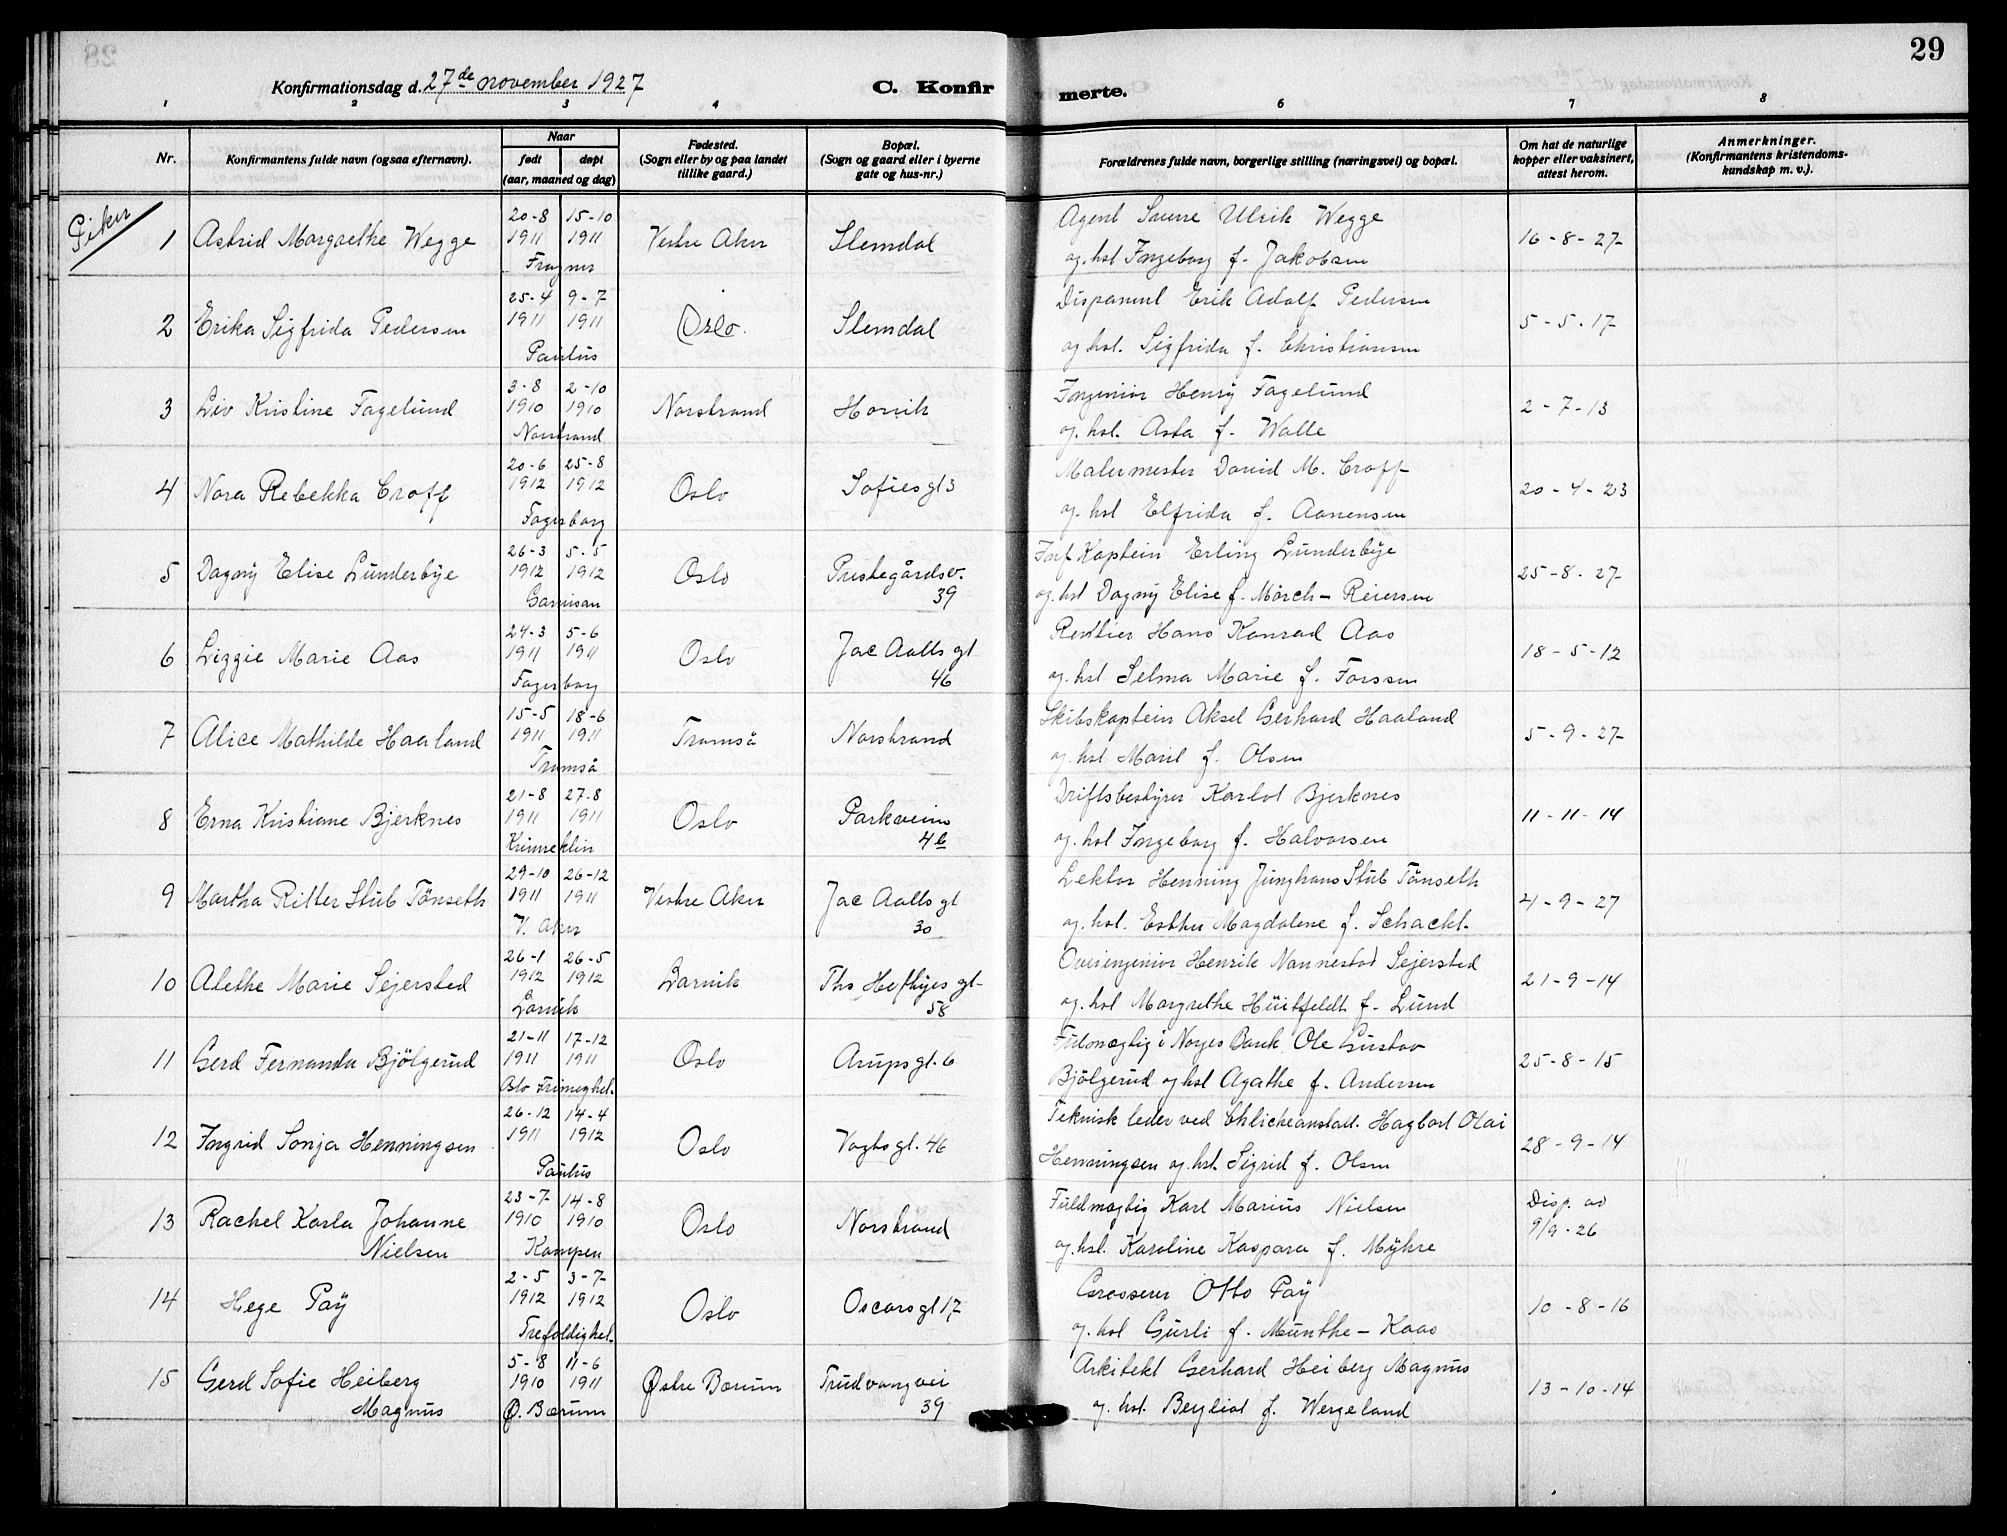 29
Konfirmationsdag d. 27de november 1927
C. Konfirmerte.
1 2 3 4 6 7 8
Nr.
Konfirmantens fulde navn (ogsaa efternavn).
Naar
født døpt
(aar, maaned og dag)
Fødested.
(Sogn eller by og paa landet
tillike gaard.)
Bopæl.
(Sogn og gaard eller i byerne
gate og hus-nr.)
Forældrenes fulde navn, borgerlige stilling (næringsvei) og bopæl.
Om hat de naturlige
kopper eller vaksinert,
attest herom.
Anmerkninger.
(Konfirmantens kristendoms-
kundskap m. v.).
Piker
20-8 15-10 Agent Sverre Ulrik Wegge
1 Astrid Margrethe Wegge 1911 1911 Vestre Aker Slemdal 16-8-27
Frogner og hst Ingeborg f. Jakobsen
25-4 9-7 Disponent Erik Adolf Pedersen
2 Erika Sigfrida Pedersen 1911 1911 Oslo. Slemdal 5-5-17
Paulus og hst. Sigfrida f. Christiansen
3-8 2-10 Ingeniør Henry Fagelund
3 Liv Kristine Fagelund 1910 1910 Norstrand Høvik 2-7-13
Norstrand og hst. Asta f. Walle
20-6 25-8 Malermester David M. Croff
4 Nora Rebekka Croff 1912 1912 Oslo Sofiesgt 3 20-4-23
Fagerborg og hst Elfrida f. Aanensen
26-3 5-5 Kaptein Erling Lunderbye
5 Dagny Elise Lunderbye 1912 1912 Oslo Prestegårdsv. 25-8-27
Garnison 39 og hst Dagny Elise f. Mörch-Reiersen
24-3 5-6 Rentier Hans Konrad Aas
6 Lizzie Marie Aas 1911 1911 Oslo Jac Aalls gt 18-5-12
Fagerborg 46 og hst Selma Marie f. Forssen
15-5 18-6 Skibskaptein Aksel Gerhard Haaland
7 Alice Mathilde Haaland 1911 1911 Tromsö Norstrand 5-9-27
Tromsö og hst Marit f. Olsen
21-8 27-8 Driftsbestyrer Karlot Bjerknes
8 Erna Kristiane Bjerknes 1911 1911 Oslo Parkveien 11-11-14
4b og hst Ingeborg f. Halvorsen
29-10 26-12 Lektor Henning Junghans Stub Tönseth
9 Martha Ritter Stub Tönseth 1911 1911 Vestre Aker Jac Aalls gt 4-9-27
V. Aker 30 og hst. Esther Magdalene f. Schacht
26-1 26-5 Overingeniør Henrik Nannestad Sejersted
10 Alethe Marie Sejersted 1912 1912 Larvik Ths Heftyes gt 21-9-14
Larvik 58 og hst Margrethe Hüitfeldt f. Lund
21-11 17-12 Fulmægtig i Norges Bank Ole Gustav
11 Gerd Fernanda Bjölgerud 1911 1911 Oslo Arupsgt. 6 25-8-15
Oslo Frimeghet. Bjölgerud og hst Agathe f. Andersen
26-12 14-4 Teknisk leder ved Chlicheanstalt. Hagbart Olai
12 Ingrid Sonja Henningsen 1911 1912 Oslo Vogtsgt. 46 28-9-14
Paulus Henningsen og hst. Sigrid f. Olsen
23-7 14-8 Fuldmægtig Karl Marius Nielsen Disp. av
13 Rachel Karla Johanne 1910 1910 Oslo Norstrand 9/9-26
Nielsen Kampen og hst. Karoline Kaspara f. Myhre
2-5 3-7 Grosserer Otto Paÿ
14 Hege Paÿ 1912 1912 Oslo Oscarsgt 17 10-8-16
Trefoldighet. og hst Gurli f. Munthe-Kaas
5-8 11-6 Arkitekt Gerhard Heiberg Magnus
15 Gerd Sofie Heiberg 1910 1911 Østre Bærum Trudvangvei 13-10-14
Magnus Ø. Bærum 39 og hst. Bergliot f. Wergeland